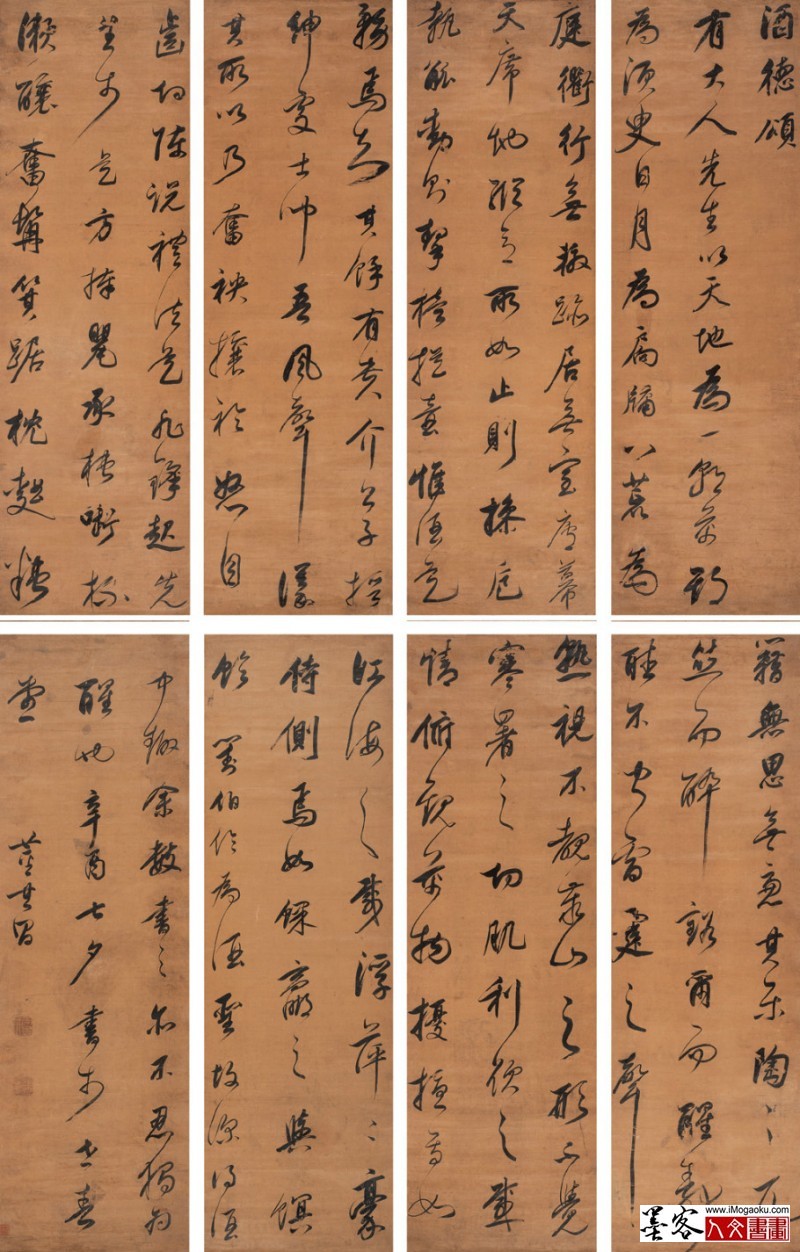 酒德頌
有大人先生以天地為一朝萬期
為須臾日月為扃牖八荒為
庭衢行無轍跡居無室廬幕
天席地縱意所如止則操卮
執觚動則挈榼提壺惟酒是
務焉知其餘有貴介公子搢
紳處士聞吾風聲議
其所以乃奮袂攘衿怒目
齒切陳說禮法是非鋒起先
生於是方捧甖承槽啣杯
漱醪奮髯箕踞枕麴糟
籍無思無慮其樂陶〻兀
然而醉豁爾而醒靜
聽不聞雷霆之聲
熟視不覩泰山之形不覺
寒暑之切肌利欲之感
情俯觀萬物擾擾焉如
江海之載浮萍二豪
侍側焉如蜾蠃之與螟
蛉 劉伯伶為酒聖故深得酒
中趣余數書之亦不忍獨為
醒也辛酉七夕書於世春
堂 董其昌
墨客 www.iMogaoku.com
人文書畫